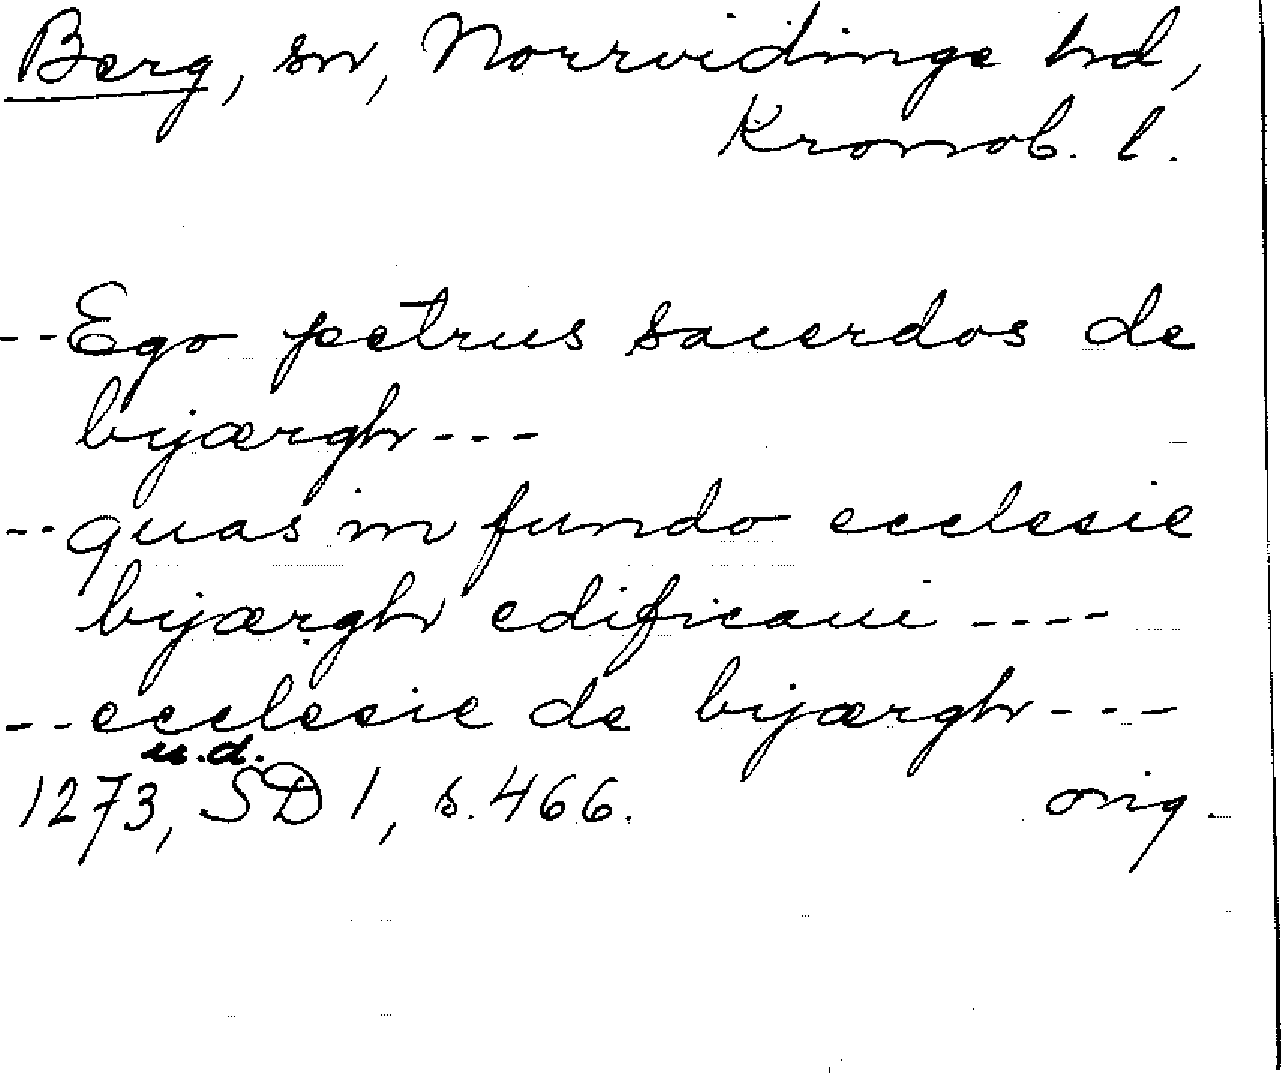 Berg, sn, Norrvidinge hd,
Kronob. l.
--Ego petrus sacerdos de
bijærgh---
--quas in fundo ecclesie
bijærgh edificaui ----
--ecclesie de bijærgh---
u.d.
1273, SD 1, s. 466. orig.